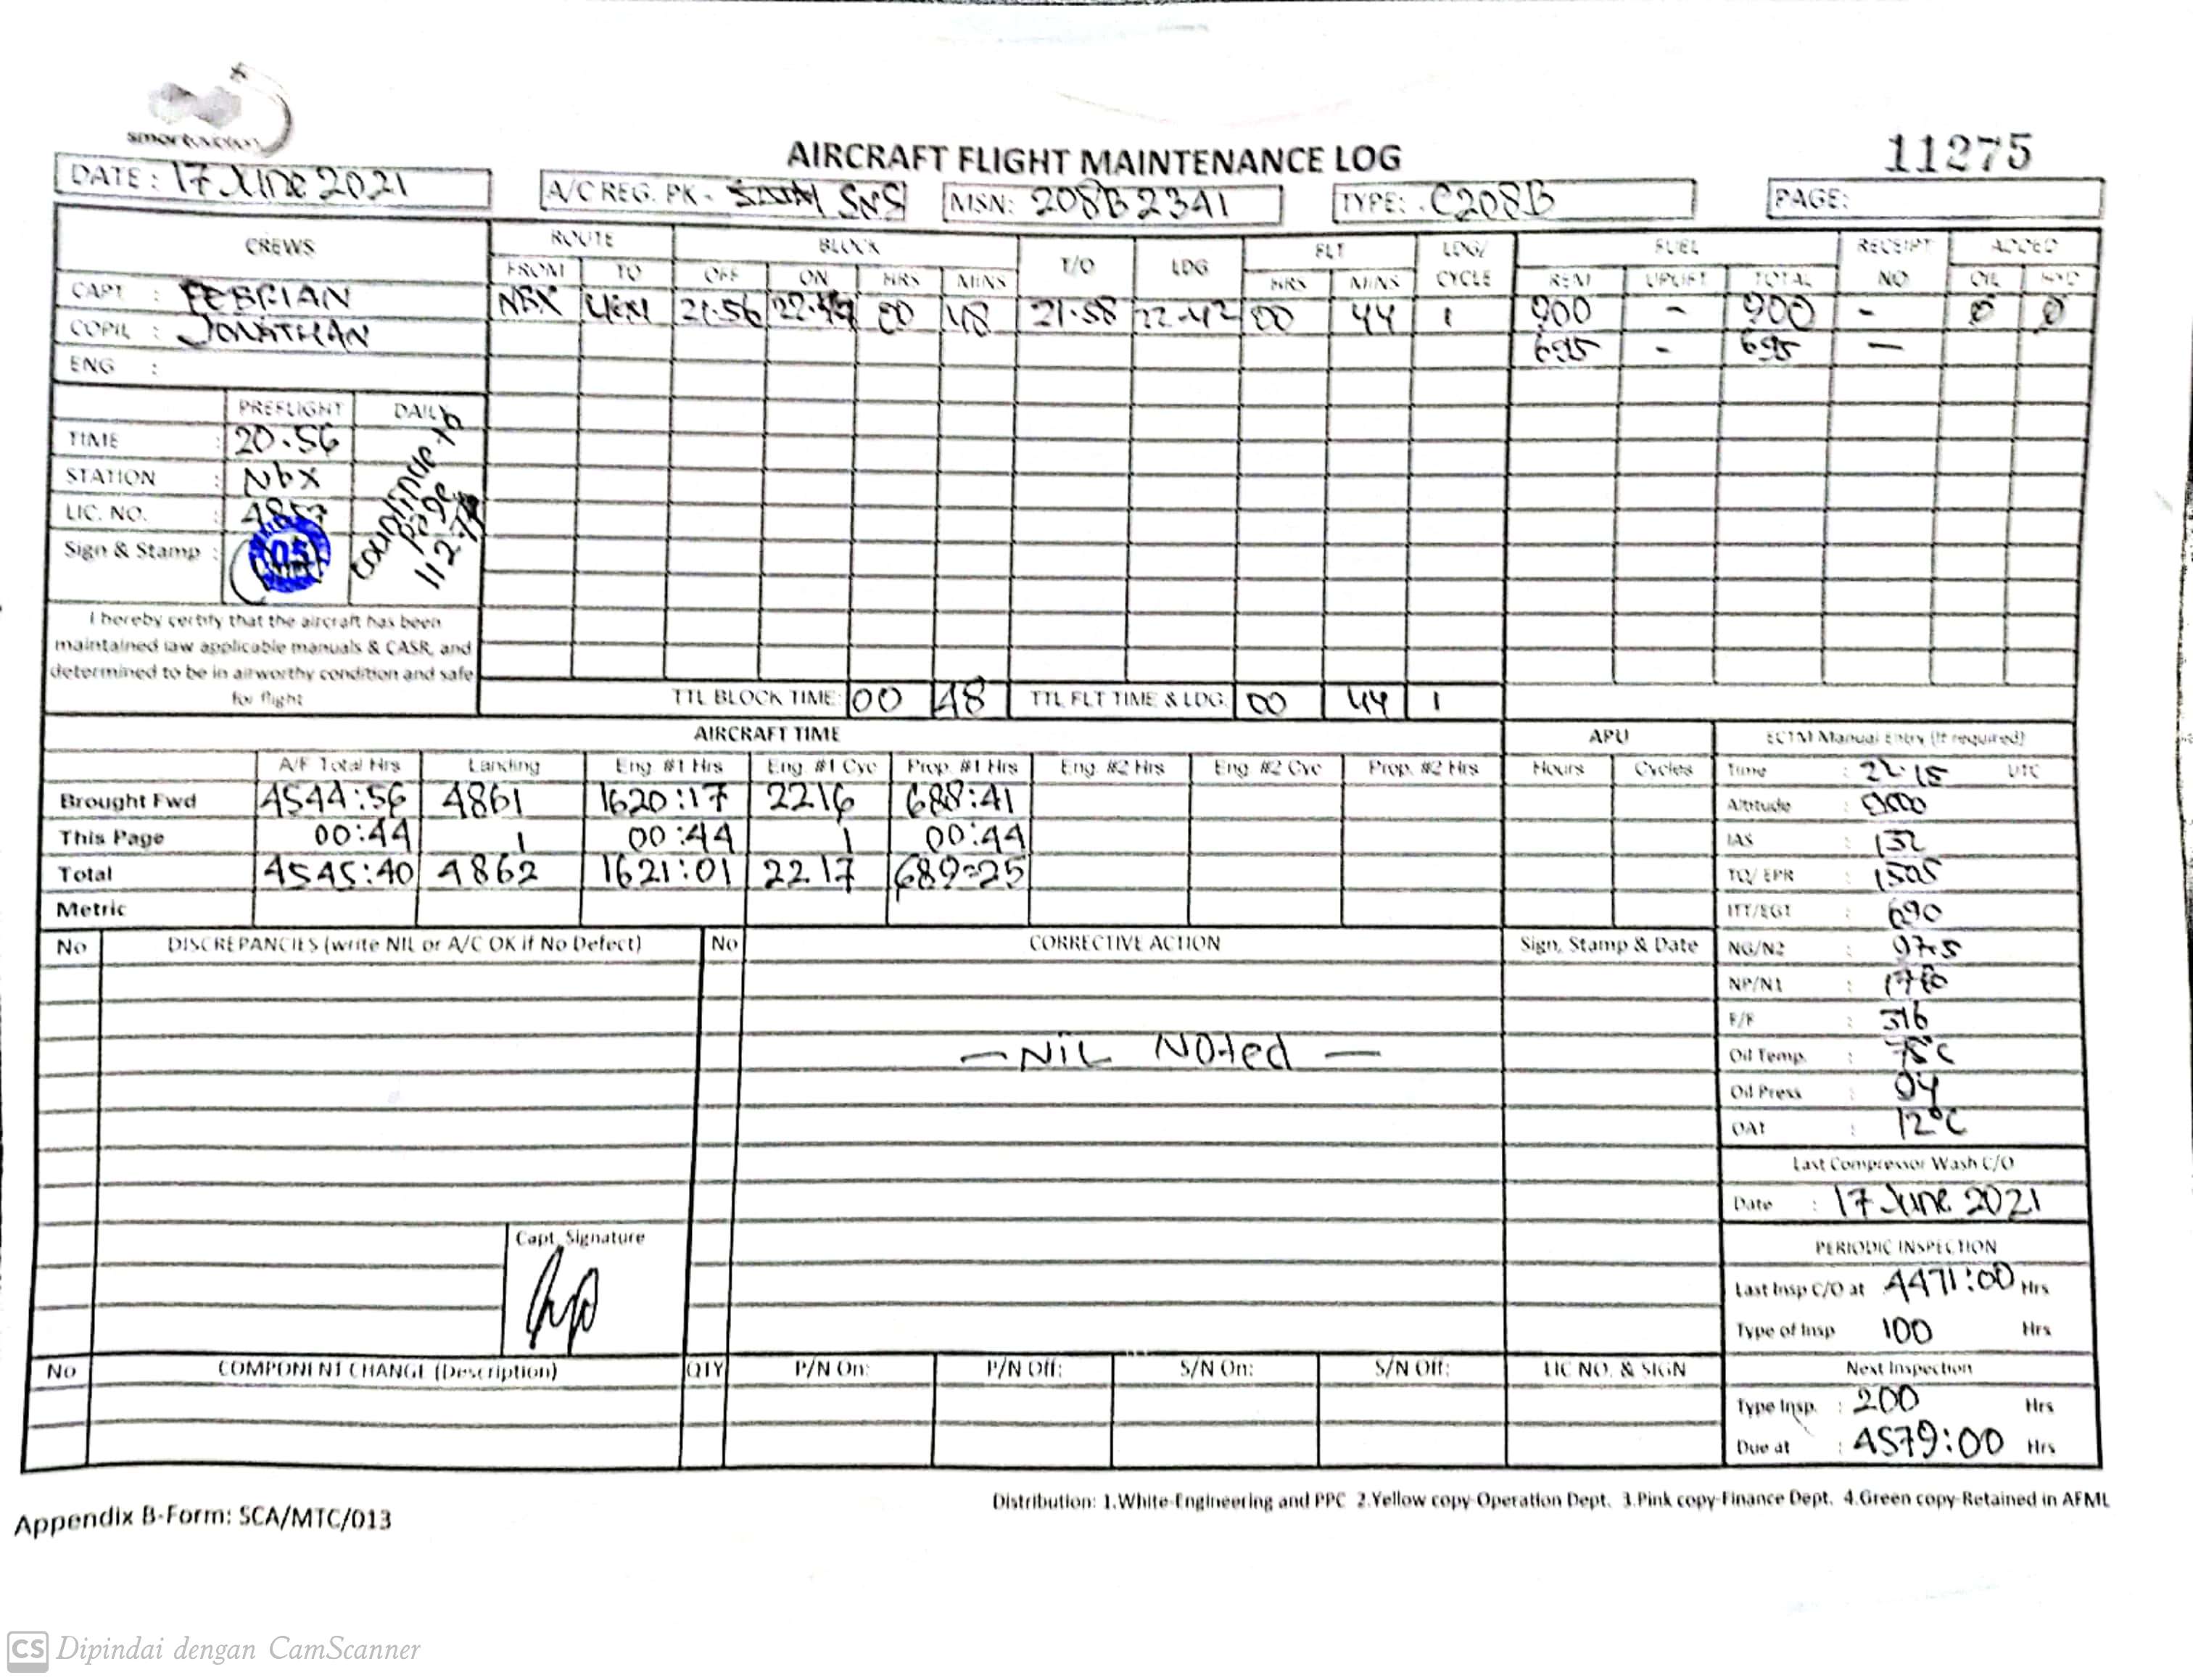 smart aviation
AIRCRAFT FLIGHT MAINTENANCE LOG
11275
DATE : 17 JUNE 2021
A/C REG. PK - SNS
MSN: 208B2341
TYPE: C208B
PAGE:
CREWS
CAPT : FEBRIAN
COPIL : JONATHAN
ENG :
ROUTE BLOCK T/O LDG FLT LDG/ CYCLE FUEL RECEIPT NO ADDED
FROM TO OFF ON HRS MINS HRS MINS REM UPLIFT TOTAL OIL HYD
NBX 21.56 00 48 21.58 22.42 00 44 1 900 - 900 - 0 0
695 - 695 —
PREFLIGHT DAILY
TIME : 20.56
STATION : NbX
LIC. NO. :
Sign & Stamp :
countinue to
page
I hereby certify that the aircraft has been
maintained iaw applicable manuals & CASR, and
determined to be in airworthy condition and safe
for flight
TTL BLOCK TIME: 00 48 TTL FLT TIME & LDG: 00 44 1
AIRCRAFT TIME
A/F Total Hrs Landing Eng. #1 Hrs Eng. #1 Cyc Prop. #1 Hrs Eng. #2 Hrs Eng. #2 Cyc Prop. #2 Hrs
Brought Fwd 4544:56 4861 1620:17 2216 688:41
This Page 00:44 1 00:44 1 00:44
Total 4545:40 4862 1621:01 2217 689:25
Metric
APU
Hours Cycles
ECTM Manual Entry (If required)
Time : 22.15 UTC
Altitude :
IAS : 132
TQ/ EPR :
ITT/EGT : 690
NG/N2 : 97.5
NP/N1 :
F/F : 316
Oil Temp. : 78°C
Oil Press : 94
OAT : 12°C
Last Compressor Wash C/O
Date : 17 June 2021
PERIODIC INSPECTION
Last Insp C/O at 4471:00 Hrs
Type of Insp 100 Hrs
Next Inspection
Type Insp. : 200 Hrs
Due at : 4579:00 Hrs
No DISCREPANCIES (write NIL or A/C OK if No Defect) No CORRECTIVE ACTION Sign, Stamp & Date
— NIL Noted —
Capt. Signature
No COMPONENT CHANGE (Description) QTY P/N On: P/N Off: S/N On: S/N Off: LIC NO. & SIGN
Distribution: 1.White-Engineering and PPC 2.Yellow copy-Operation Dept. 3.Pink copy-Finance Dept. 4.Green copy-Retained in AFML
Appendix B-Form: SCA/MTC/013
CS Dipindai dengan CamScanner